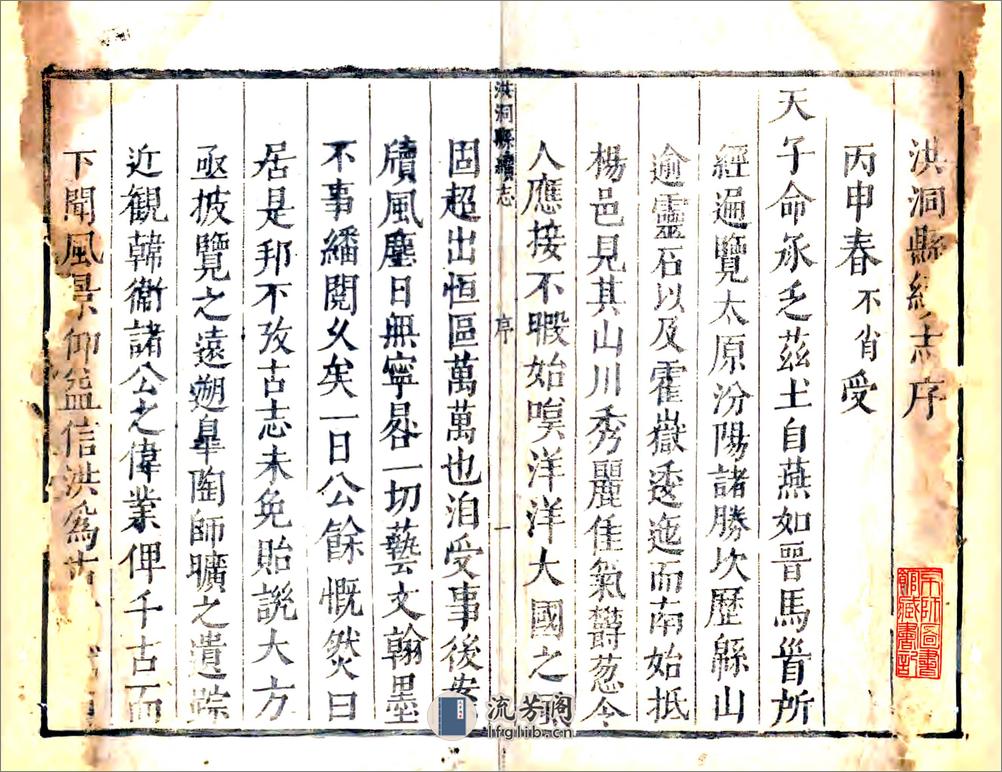 洪洞縣續志序
丙申春不省受
天子命承乏茲土自燕如晉馬首所
經遍覽太原汾陽諸勝次歷縣山
逾靈石以及霍嶽逶迤而南始抵
楊邑見其山川秀麗佳氣欝葱令
人應接不暇始嘆洋洋大國之
洪洞縣續志
序
一
固超出恒區萬萬也洎受事後案
牘風塵日無寧晷一切藝文翰墨
不事繙閱久矣一日公餘慨然曰
居是邦不攷古志未免貽譏大方
亟披覽之遠遡臯陶師曠之遺踪
近觀韓衛諸公之偉業俾千古而
下聞風景仰益信洪爲古
流芳阁
lfglib.cn